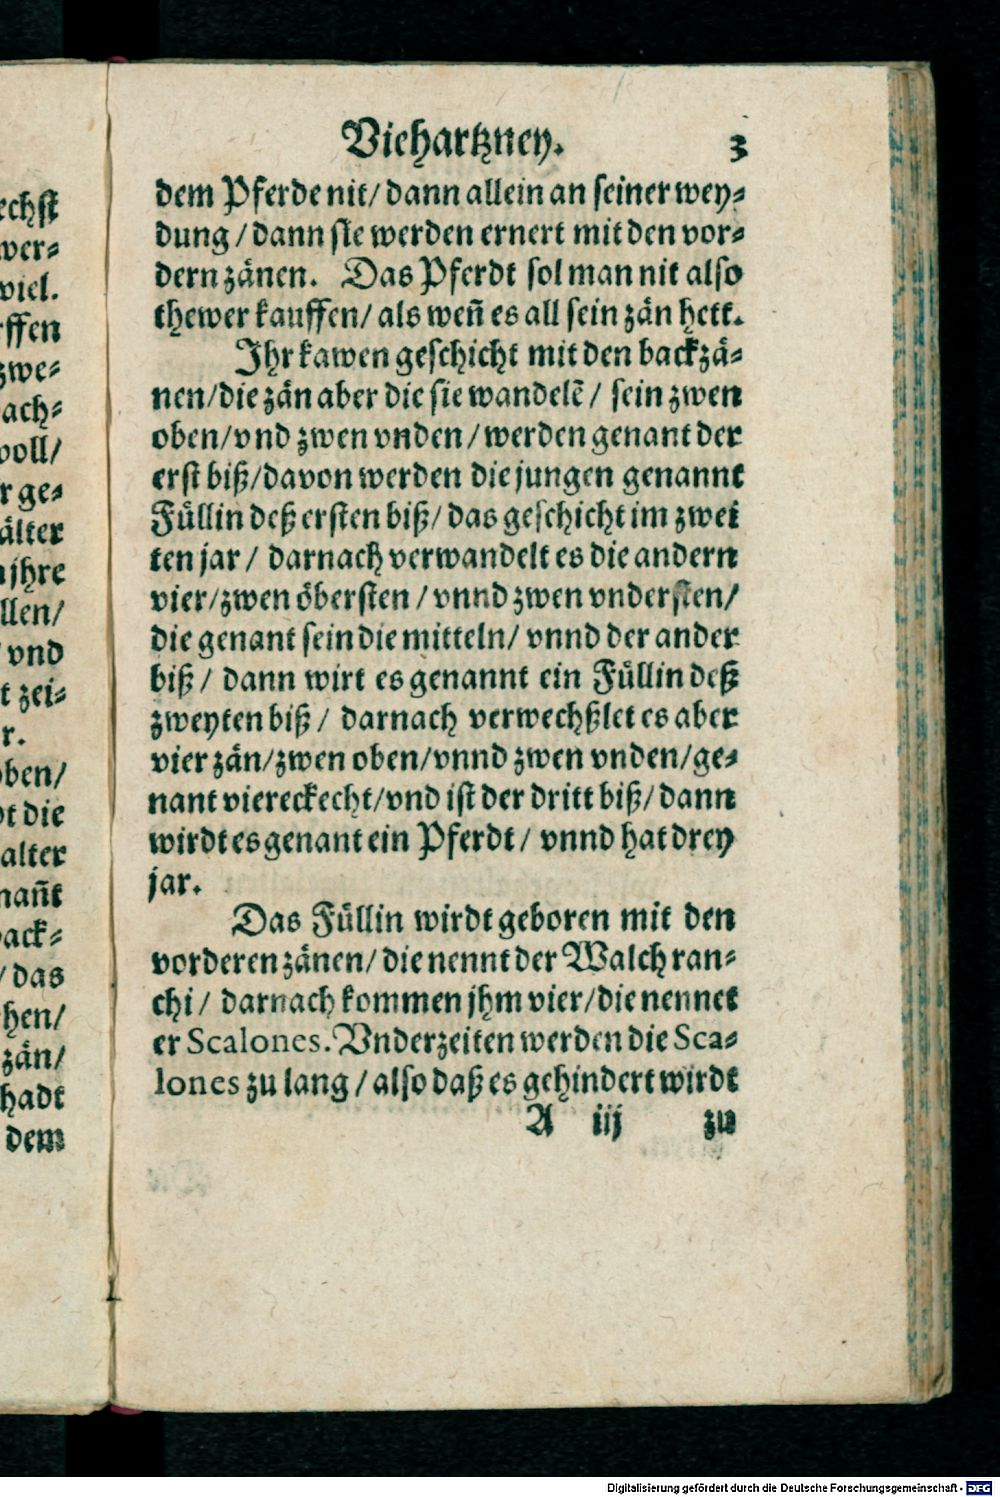 echst
wer⸗
viel.
rffen
zwe⸗
ach⸗
voll/
r ge⸗
älter
jhre
llen/
vnd
t zei⸗
r.
oben/
dt die
alter
nañt
back⸗
/ das
hen/
zän/
hadt
dem
Viehartzney. 3
dem Pferde nit/ dann allein an seiner wey⸗
dung / dann sie werden ernert mit den vor⸗
dern zänen. Das Pferdt sol man nit also
thewer kauffen/ als weñ es all sein zän hett.
Ihr kawen geschicht mit den backzä⸗
nen/die zän aber die sie wandelẽ / sein zwen
oben/vnd zwen vnden / werden genant der
erst biß/davon werden die jungen genannt
Füllin deß ersten biß/ das geschicht im zwei
ten jar / darnach verwandelt es die andern
vier/zwen öbersten / vnnd zwen vndersten/
die genant sein die mitteln/ vnnd der ander
biß / dann wirt es genannt ein Füllin deß
zweyten biß / darnach verwechßlet es aber
vier zän/zwen oben/vnnd zwen vnden/ge⸗
nant viereckecht/vnd ist der dritt biß/ dann
wirdt es genant ein Pferdt / vnnd hat drey
jar.
Das Füllin wirdt geboren mit den
vorderen zänen/ die nennt der Walch ran⸗
chi / darnach kommen jhm vier/die nennet
er Scalones. Vnderzeiten werden die Sca⸗
lones zu lang / also daß es gehindert wirdt
A iij zu
Digitalisierung gefördert durch die Deutsche Forschungsgemeinschaft - DFG